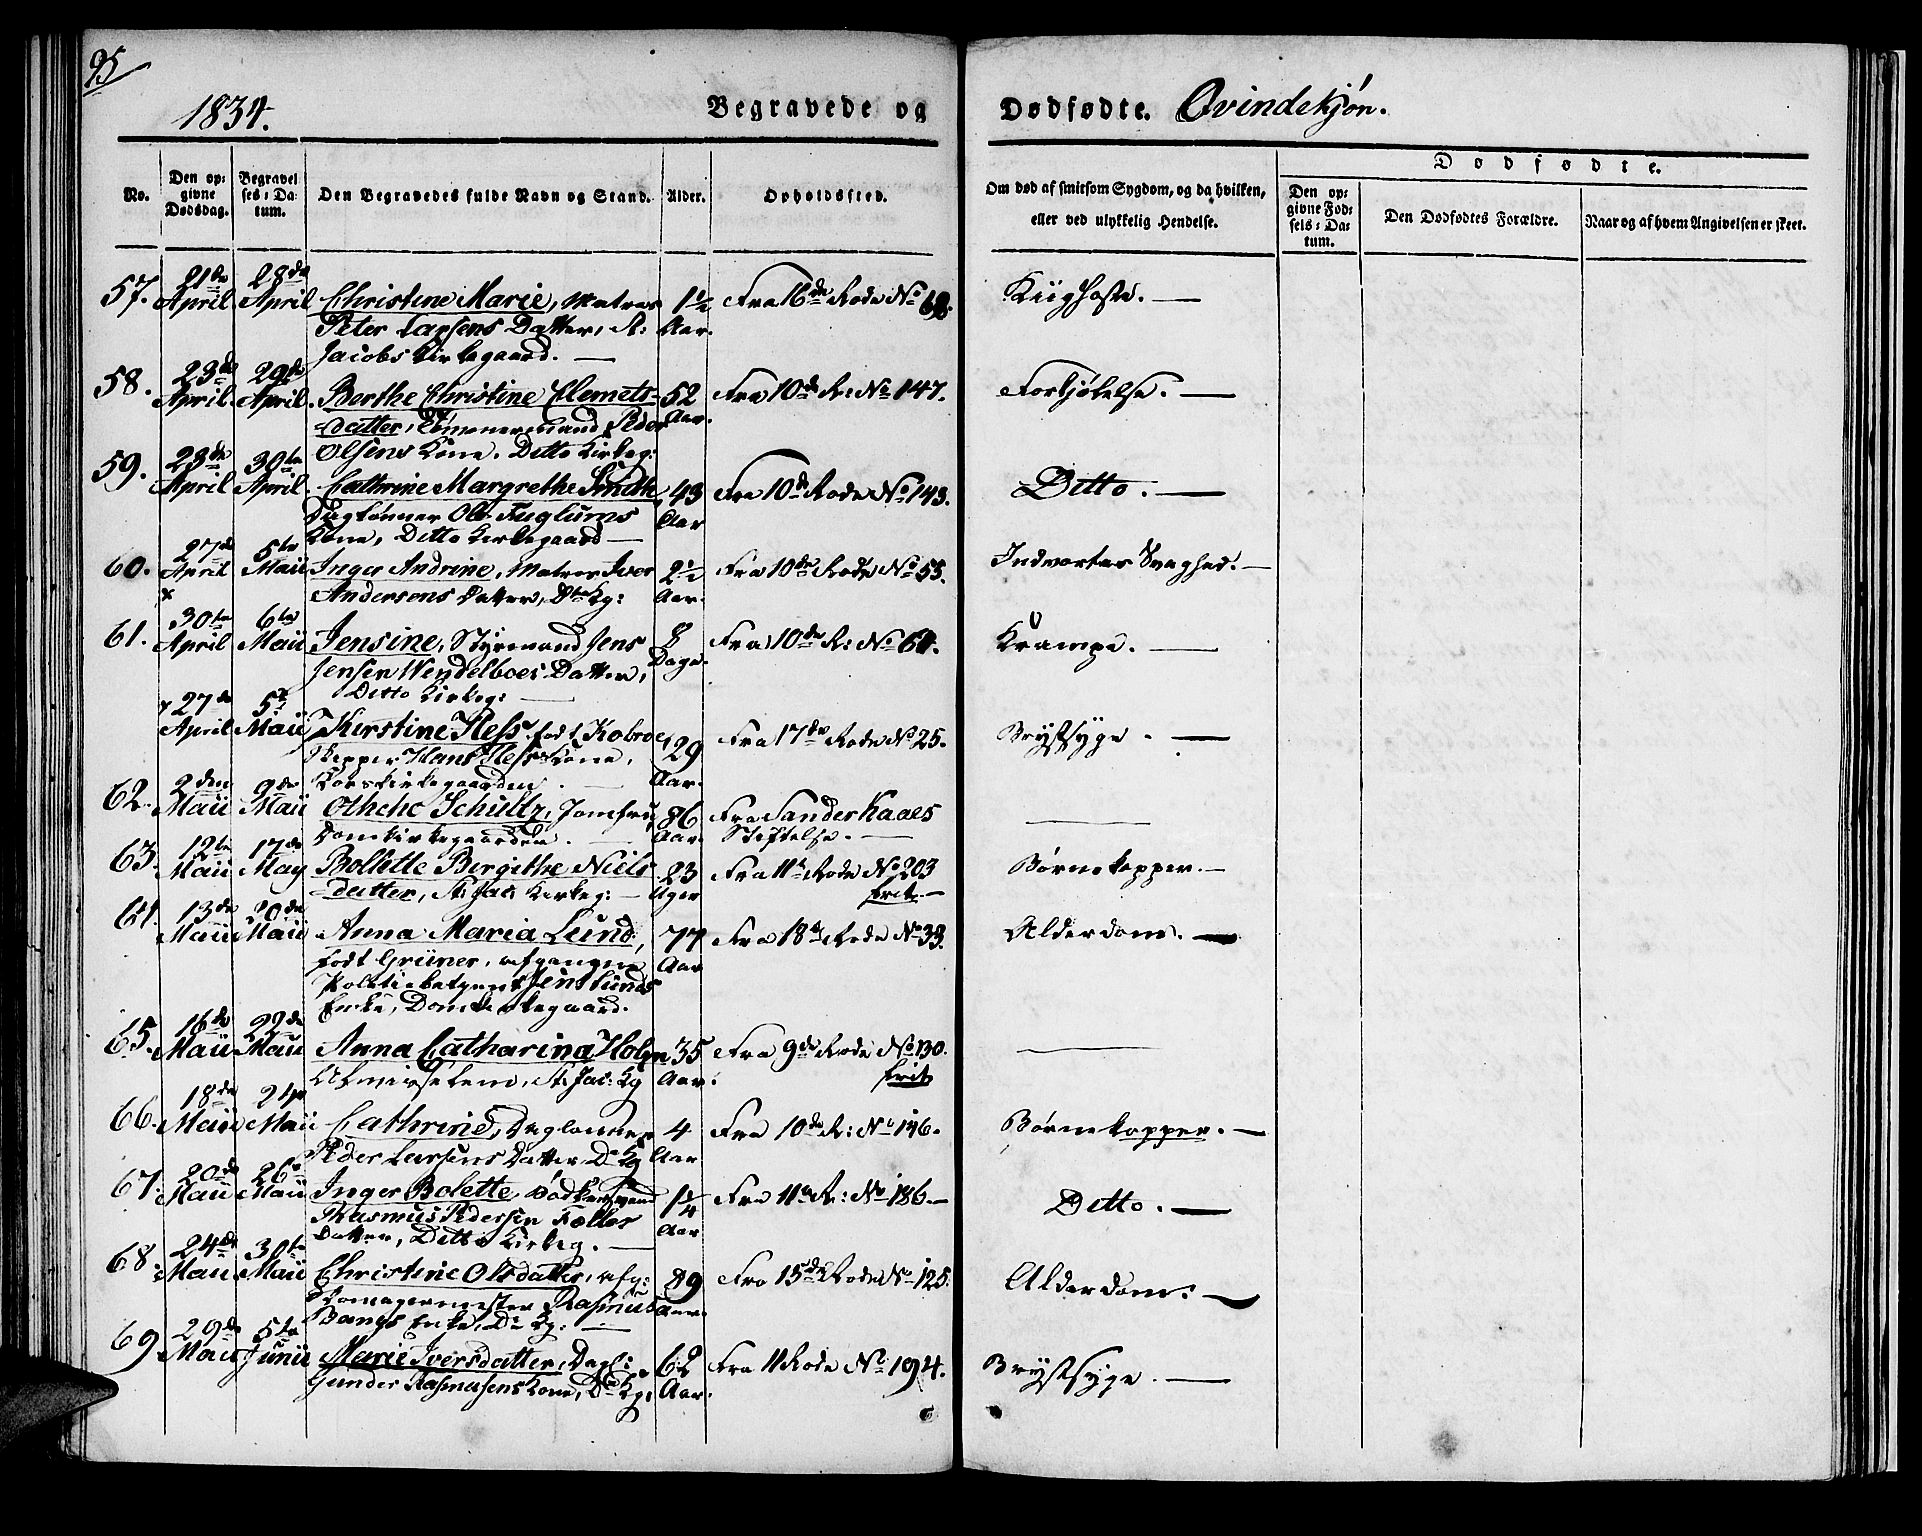 95
1834.
Begravede og Dødfødte. Qvindekjøn.
No.
Den op:
givne
Dødsdag.
Begravel
ses: Da:
tum.
Den Begravedes fulde Navn og Stand.
Alder.
Opholdssted.
Om død af smitsom Sygdom, og da hvilken,
eller ved ulykkelig Hendelse.
Dødfødte.
Den op:
givne Fød:
sels: Da:
tum.
Den Dødfødtes Forældre.
Naar og af hvem Angivelsen er skeet.
57. 21de April 28de April Christine Marie, Matros 1½ Aar. Fra 16de Rode No 68. Kiighoste. —
Peter Larsens Datter, St:
Jacobs Kirkegaard. —
58. 23de April 29de April Berthe Christine Clemets- 52 Aar. Fra 10de R: No 147. Forkjølelse. —
datter, Tømmermand Peder
Olsens Kone. Ditto Kirkeg:
59. 23de April 30te April Cathrine Margrethe Smidth 43 Aar Fra 10de Rode No 143. Ditto. —
Daglønner Ole Fuglums
Kone, Ditto Kirkegaard —
60. 27de April 5te Maii Inger Andrine, Matros Iver 2½ Aar. Fra 10de Rode No 55. Indvortes Svaghed. —
x Andersens Datter, Dto Kg:
61. 30te April 6te Maii Jensine, Styrmand Jens 8 Dage. Fra 10de R: No 64. Krampe. —
Jensen Wendelboes Datter,
Ditto Kirkeg: —
27de April 5te Maii Kirstine Hess, født Kobroe, 29 Aar. Fra 17de Rode No 25. Brystsyge. —
Skipper Hans Hess's Kone,
Korskirkegaarden. —
62. 2den Maii 9de Maii Othche Schultz, Jomfru, 86 Aar. Fra Sander Kaaes
Domkirkegaarden. — Stiftelse. —
63. 12te Maii 17de May Bollette Birgithe Niels- 23 Uger Fra 11te Rode No 203 Børnekopper. —
datter, St. Jac: Kirkeg: — frit. —
64. 13de Maii 20de Maii Anna Maria Lund, 77 Aar Fra 18de Rode No 33. Alderdom. —
født Grüner, afgangne
Politiebetjent Jens Lunds
Enke, Domkirkegaard.
65. 16de Maii 22de Maii Anna Catharina Holm 35 Aar. Fra 9de Rode No 130.
Almisselem, St. Jac: Kg frit
66. 18de Maii 24de Maii Cathrine, Daglønner 4 Aar Fra 10de R: No 146. Børnekopper. —
Peder Larsens Datter Do Kg
67. 20de Maii 26de Maii Inger Bolette, Bødkersvend 1¼ Aar Fra 11te R: No 186. — Ditto. —
Rasmus Pedersen
Datter, Ditto Kirkeg. —
68. 24de Maii 30te Maii Christine Olsdatter, afg: 89 Aar. Fra 15de Rode No 125. Alderdom. —
Skomagermester Rasmus
Bangs Enke, Do Kg: —
69. 29de Maii 5te Junii Marie Iversdatter, Dagl: 62 Aar. Fra 11 Rode No 194. Brystsyge. —
Gunder Rasmusens Kone, Do Kg: